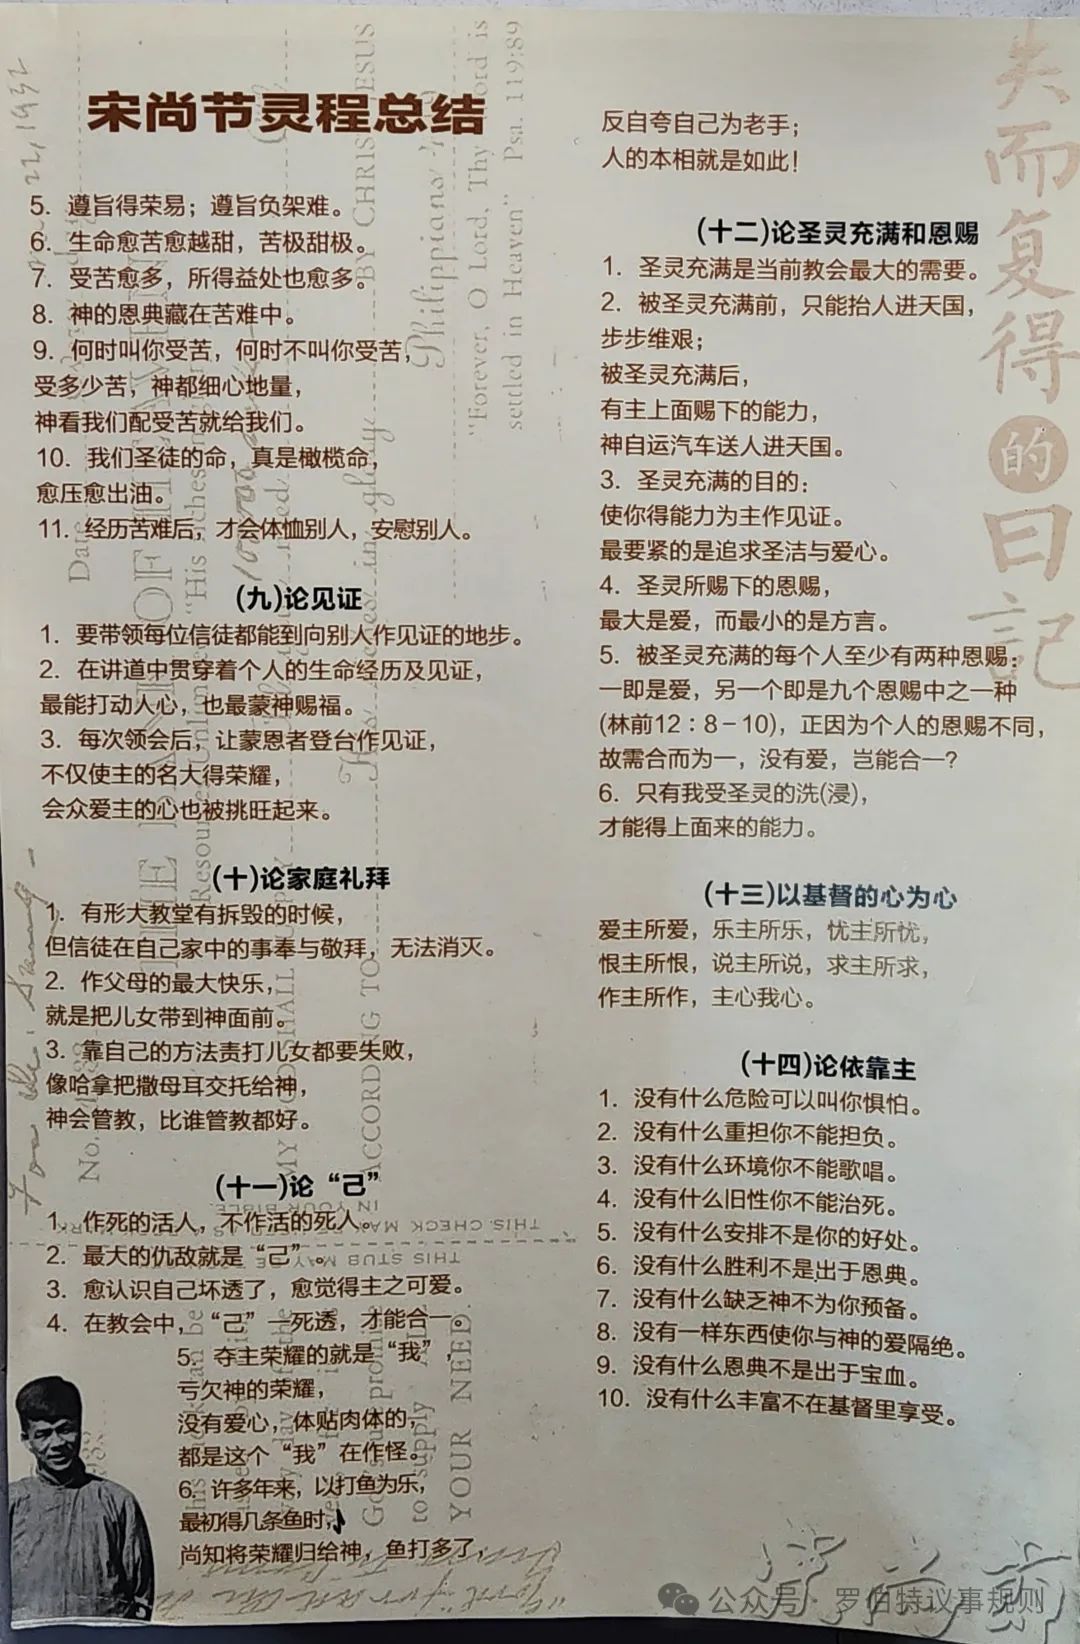 宋尚节灵程总结
5. 遵旨得荣易；遵旨负架难。
6. 生命愈苦愈越甜，苦极甜极。
7. 受苦愈多，所得益处也愈多。
8. 神的恩典藏在苦难中。
9. 何时叫你受苦，何时不叫你受苦，
受多少苦，神都细心地量，
神看我们配受苦就给我们。
10. 我们圣徒的命，真是橄榄命，
愈压愈出油。
11. 经历苦难后，才会体恤别人，安慰别人。
(九)论见证
1. 要带领每位信徒都能到向别人作见证的地步。
2. 在讲道中贯穿着个人的生命经历及见证，
最能打动人心，也最蒙神赐福。
3. 每次领会后，让蒙恩者登台作见证，
不仅使主的名大得荣耀，
会众爱主的心也被挑旺起来。
(十)论家庭礼拜
1. 有形大教堂有拆毁的时候，
但信徒在自己家中的事奉与敬拜，无法消灭。
2. 作父母的最大快乐，
就是把儿女带到神面前。
3. 靠自己的方法责打儿女都要失败，
像哈拿把撒母耳交托给神，
神会管教，比谁管教都好。
(十一)论“己”
1. 作死的活人，不作活的死人。
2. 最大的仇敌就是“己”。
3. 愈认识自己坏透了，愈觉得主之可爱。
4. 在教会中，“己”一死透，才能合一。
5. 夺主荣耀的就是“我”，
亏欠神的荣耀，
没有爱心，体贴肉体的，
都是这个“我”在作怪。
6. 许多年来，以打鱼为乐，
最初得几条鱼时，
尚知将荣耀归给神，鱼打多了
反自夸自己为老手；
人的本相就是如此！
(十二)论圣灵充满和恩赐
1. 圣灵充满是当前教会最大的需要。
2. 被圣灵充满前，只能抬人进天国，
步步维艰；
被圣灵充满后，
有主上面赐下的能力，
神自运汽车送人进天国。
3. 圣灵充满的目的：
使你得能力为主作见证。
最要紧的是追求圣洁与爱心。
4. 圣灵所赐下的恩赐，
最大是爱，而最小的是方言。
5. 被圣灵充满的每个人至少有两种恩赐：
一即是爱，另一个即是九个恩赐中之一种
(林前12：8－10)，正因为个人的恩赐不同，
故需合而为一，没有爱，岂能合一？
6. 只有我受圣灵的洗(浸)，
才能得上面来的能力。
(十三)以基督的心为心
爱主所爱，乐主所乐，忧主所忧，
恨主所恨，说主所说，求主所求，
作主所作，主心我心。
(十四)论依靠主
1. 没有什么危险可以叫你惧怕。
2. 没有什么重担你不能担负。
3. 没有什么环境你不能歌唱。
4. 没有什么旧性你不能治死。
5. 没有什么安排不是你的好处。
6. 没有什么胜利不是出于恩典。
7. 没有什么缺乏神不为你预备。
8. 没有一样东西使你与神的爱隔绝。
9. 没有什么恩典不是出于宝血。
10. 没有什么丰富不在基督里享受。
失而复得的日記
"Forever, O Lord, Thy Word is
settled in Heaven" Psa. 119:89
Philippians
BY CHRIST JESUS
ACCORDING TO
YOUR NEED.
Date
No.
THIS CHECK MAY
IN YOUR BIBLE
THIS STUB MAY BE
公众号 · 罗伯特议事规则